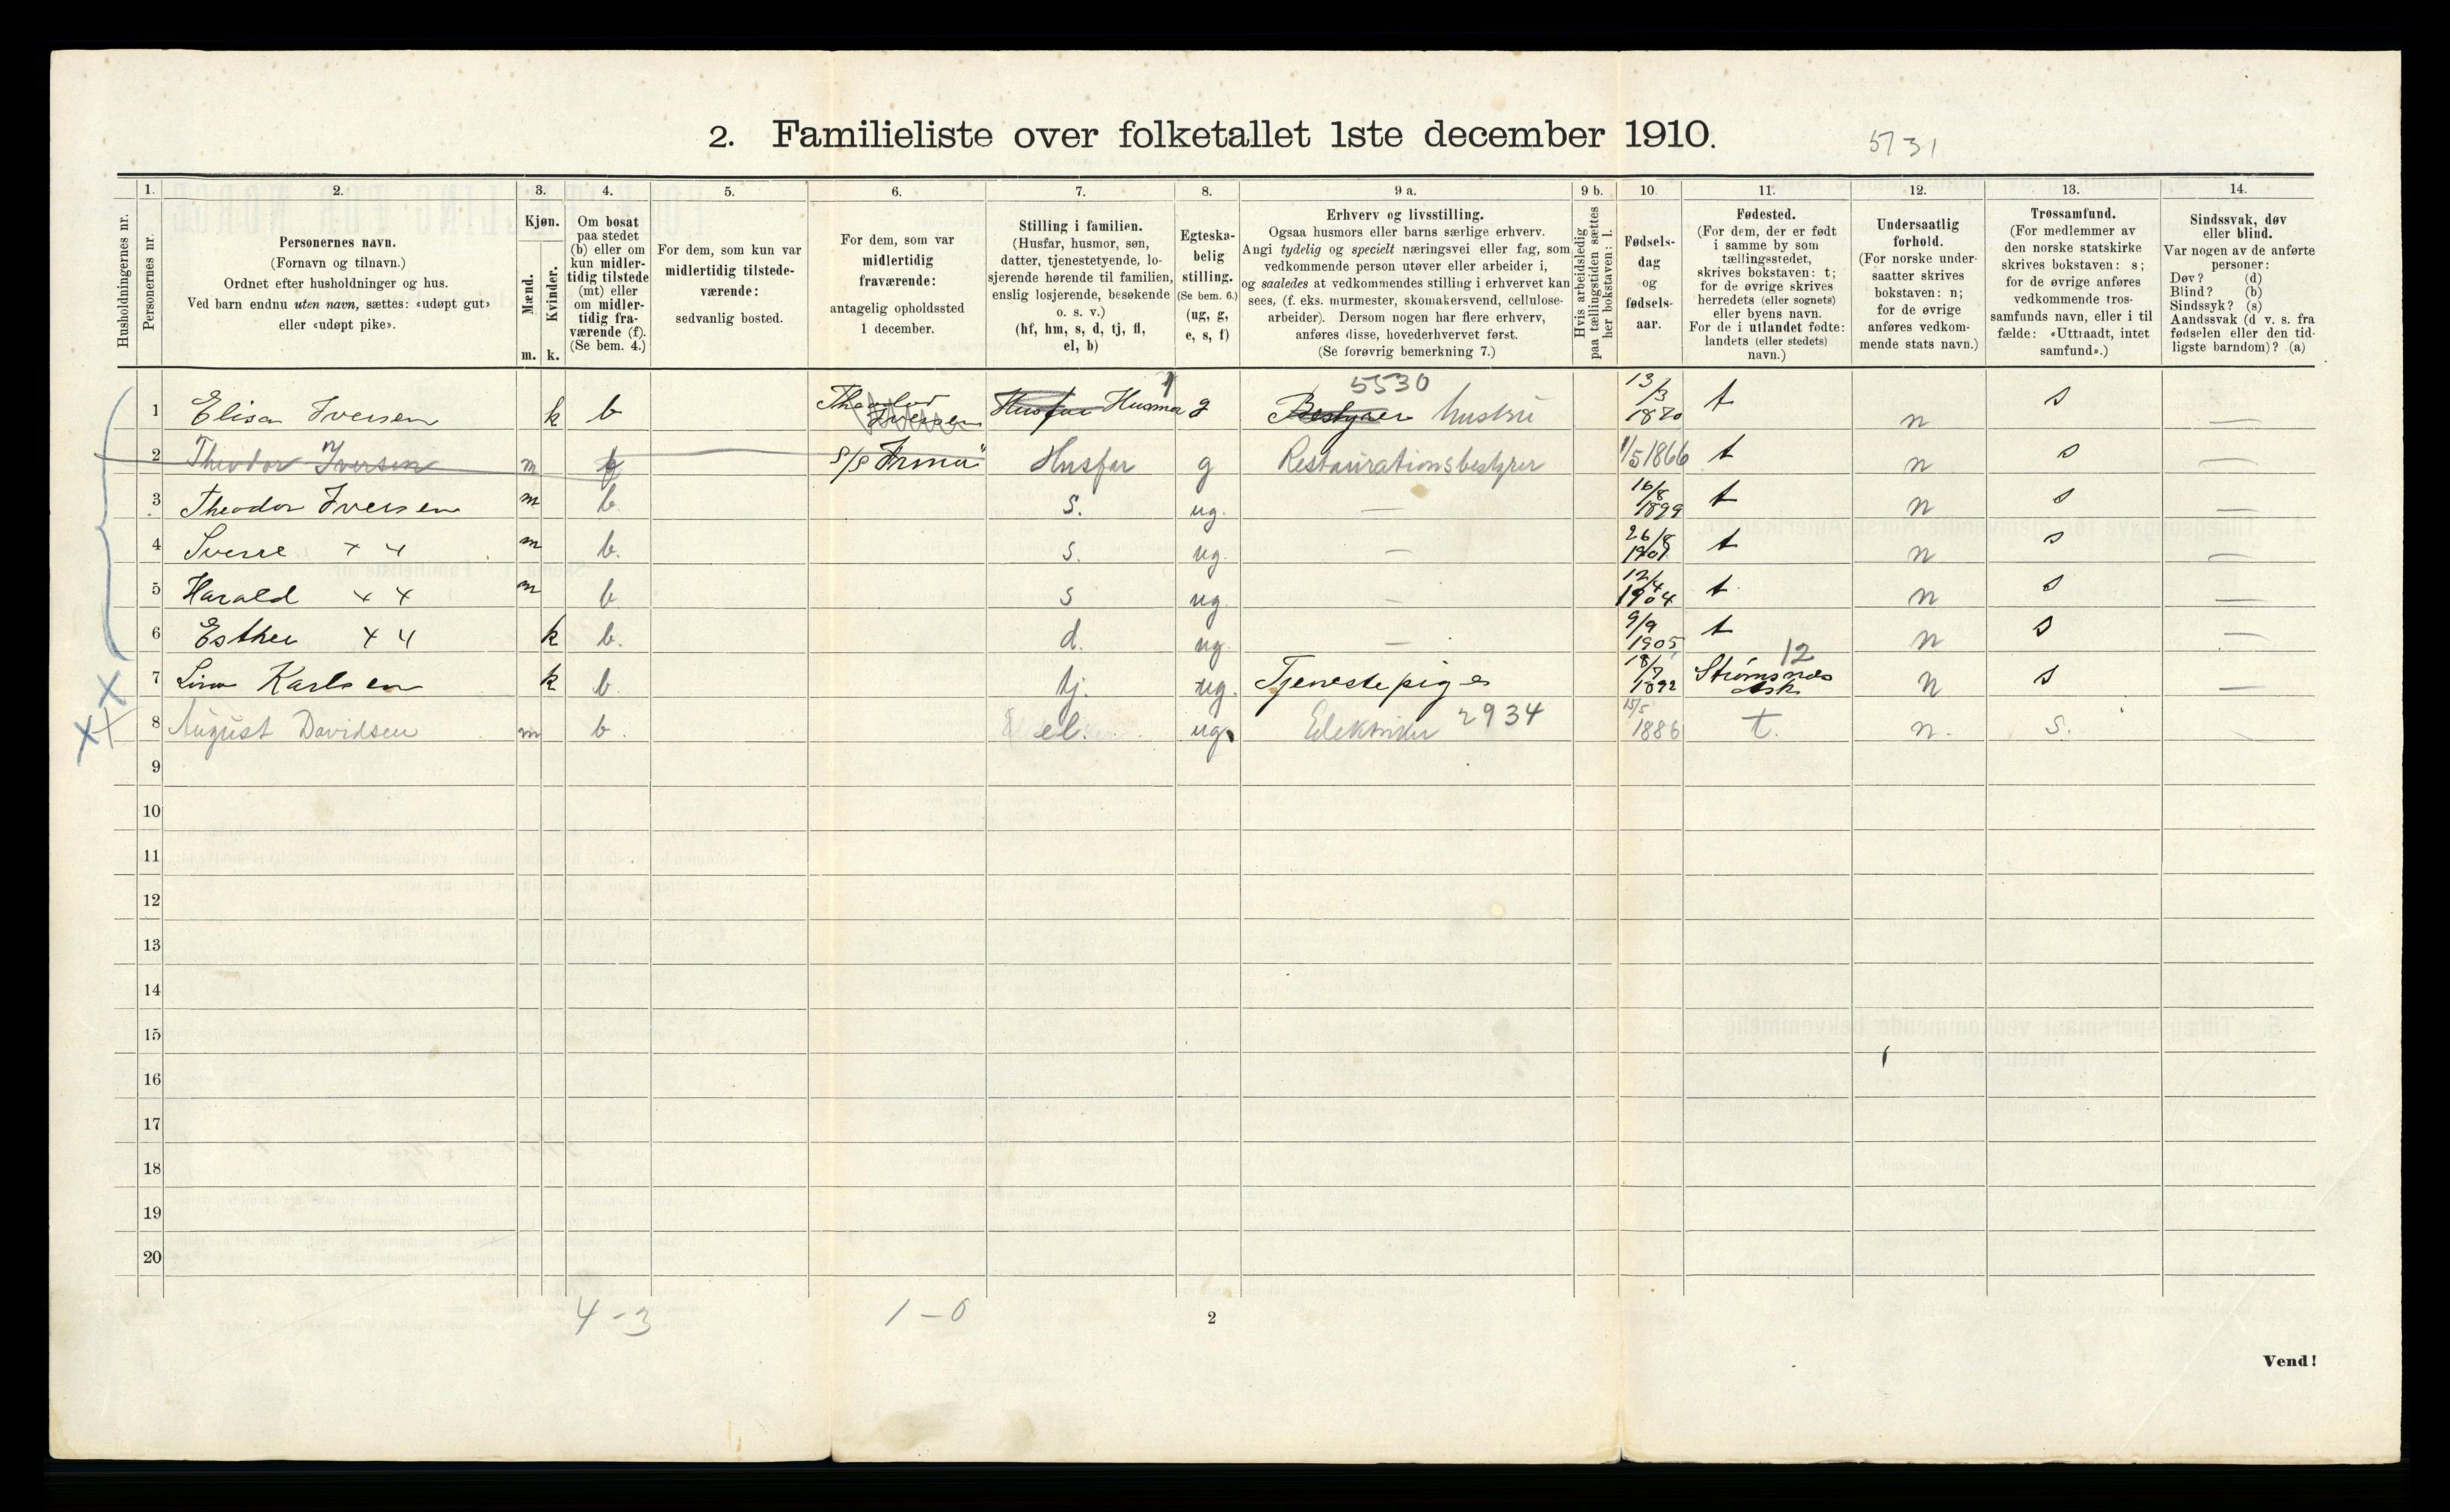 2. Familieliste over folketallet 1ste december 1910.
5731
Husholdningernes nr.
1.
Personernes nr.
2.
Personernes navn.
(Fornavn og tilnavn.)
Ordnet efter husholdninger og hus.
Ved barn endnu uten navn, sættes: «udøpt gut»
eller «udøpt pike».
3.
Kjøn.
Mænd.
Kvinder.
m. k.
4.
Om bosat
paa stedet
(b) eller om
kun midler-
tidig tilstede
(mt) eller
om midler-
tidig fra-
værende (f).
(Se bem. 4.)
5.
For dem, som kun var
midlertidig tilstede-
værende:
sedvanlig bosted.
6.
For dem, som var
midlertidig
fraværende:
antagelig opholdssted
1 december.
7.
Stilling i familien.
(Husfar, husmor, søn,
datter, tjenestetyende, lo-
sjerende hørende til familien,
enslig losjerende, besøkende
o. s. v.)
(hf, hm, s, d, tj, fl,
el, b)
8.
Egteska-
belig
stilling.
(Se bem. 6.)
(ug, g,
e, s, f)
9 a.
Erhverv og livsstilling.
Ogsaa husmors eller barns særlige erhverv.
Angi tydelig og specielt næringsvei eller fag, som
vedkommende person utøver eller arbeider i,
og saaledes at vedkommendes stilling i erhvervet kan
sees, (f. eks. murmester, skomakersvend, cellulose-
arbeider). Dersom nogen har flere erhverv,
anføres disse, hovederhvervet først.
(Se forøvrig bemerkning 7.)
9 b.
Hvis arbeidsledig
paa tællingstiden sættes
her bokstaven: l.
10.
Fødsels-
dag
og
fødsels-
aar.
11.
Fødested.
(For dem, der er født
i samme by som
tællingsstedet,
skrives bokstaven: t;
for de øvrige skrives
herredets (eller sognets)
eller byens navn.
For de i utlandet fødte:
landets (eller stedets)
navn.)
12.
Undersaatlig
forhold.
(For norske under-
saatter skrives
bokstaven: n;
for de øvrige
anføres vedkom-
mende stats navn.)
13.
Trossamfund.
(For medlemmer av
den norske statskirke
skrives bokstaven: s;
for de øvrige anføres
vedkommende tros-
samfunds navn, eller i til
fælde: «Uttraadt, intet
samfund».)
14.
Sindssvak, døv
eller blind.
Var nogen av de anførte
personer:
Døv? (d)
Blind? (b)
Sindssyk? (s)
Aandssvak (d v. s. fra
fødselen eller den tid-
ligste barndom)? (a)
1 Elisa Iversen k b Theodor Iversen Husfar Husmor g 5530 Bestyrer hustru 13/3 1870 t n s —
2 Theodor Iversen m f S/S "Irma" Husfar g Restaurationsbestyrer 1/5 1866 t n s —
3 Theodor Iversen m b. s. ug. — 16/8 1899 t n s —
4 Sverre " " m b. s. ug. — 26/8 1901 t n s —
5 Harald " " m b s ug. — 12/4 1904 t n s —
6 Esther " " k b. d. ug. — 9/9 1905 t n s —
7 Lina Karlsen k b. tj. ug. Tjenestepige 18/7 1892 12 Strømsnes n s —
8 August Davidsen m b. el. ug. Elektriker 2934 15/5 1886 t. n. s. —
9
10
11
12
13
14
15
16
17
18
19
20
4 - 3
1 - 0
2
Vend!